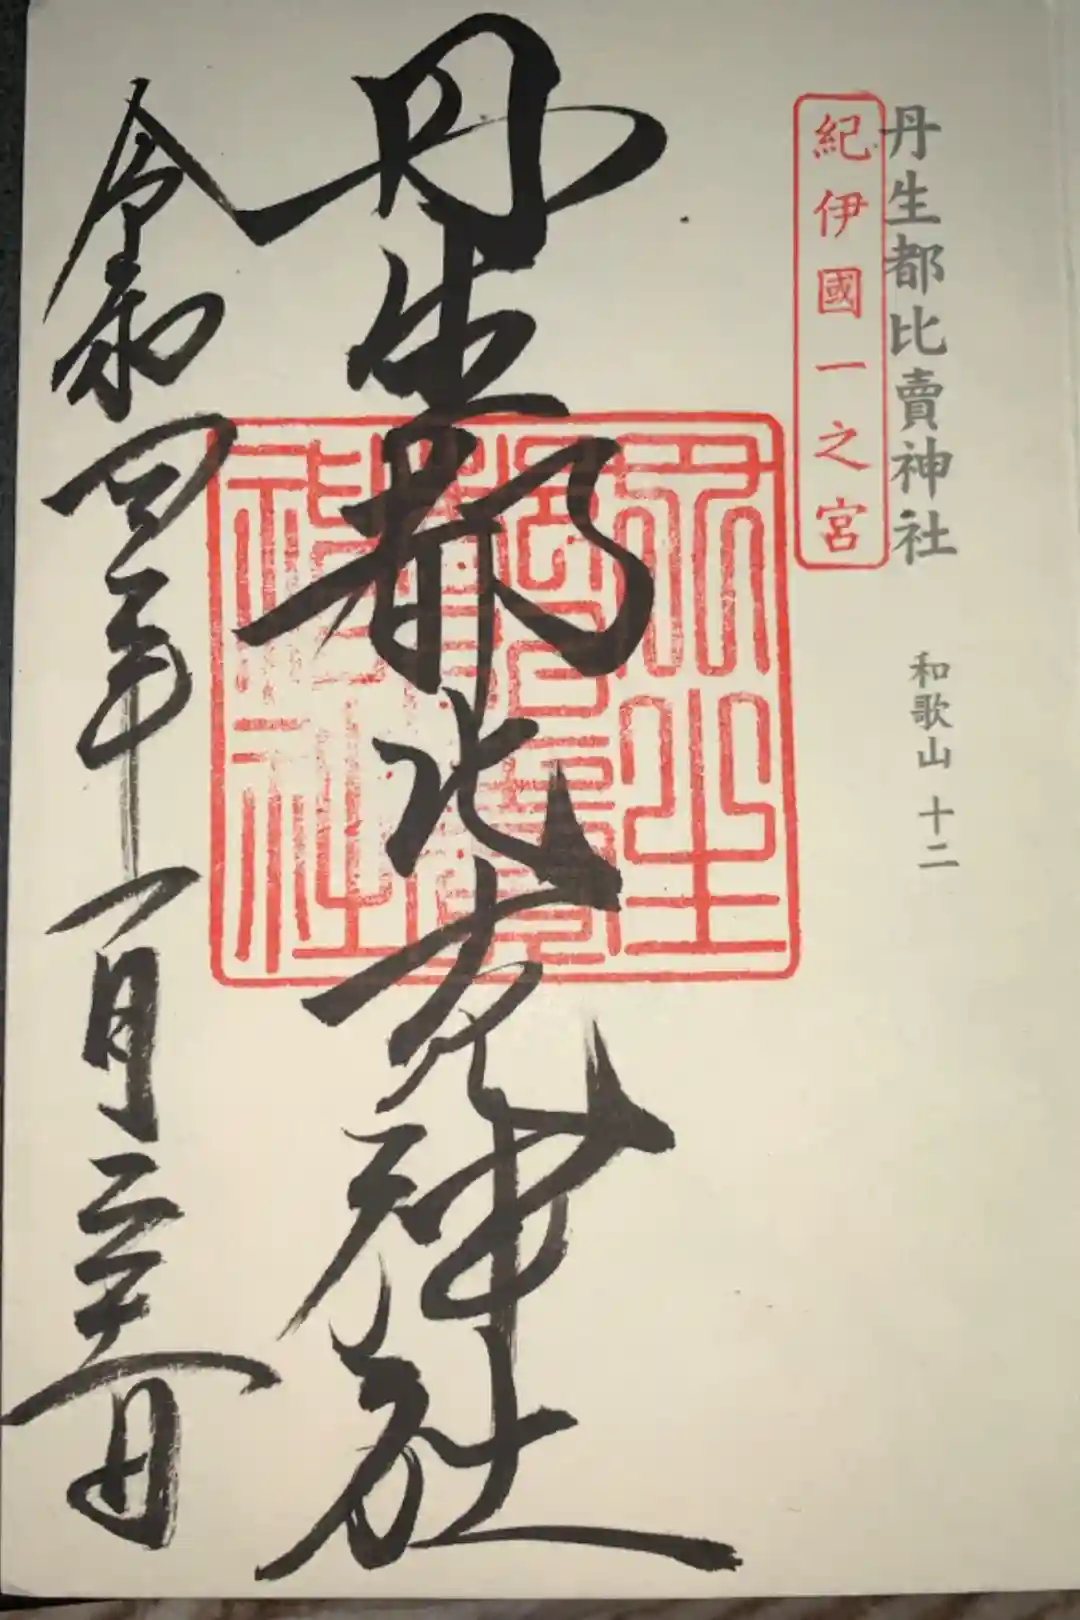 丹生都比賣神社 和歌山 十二
紀伊國一之宮
丹生都比売神社
丹生
都比賣
神社
令和四年一月 日